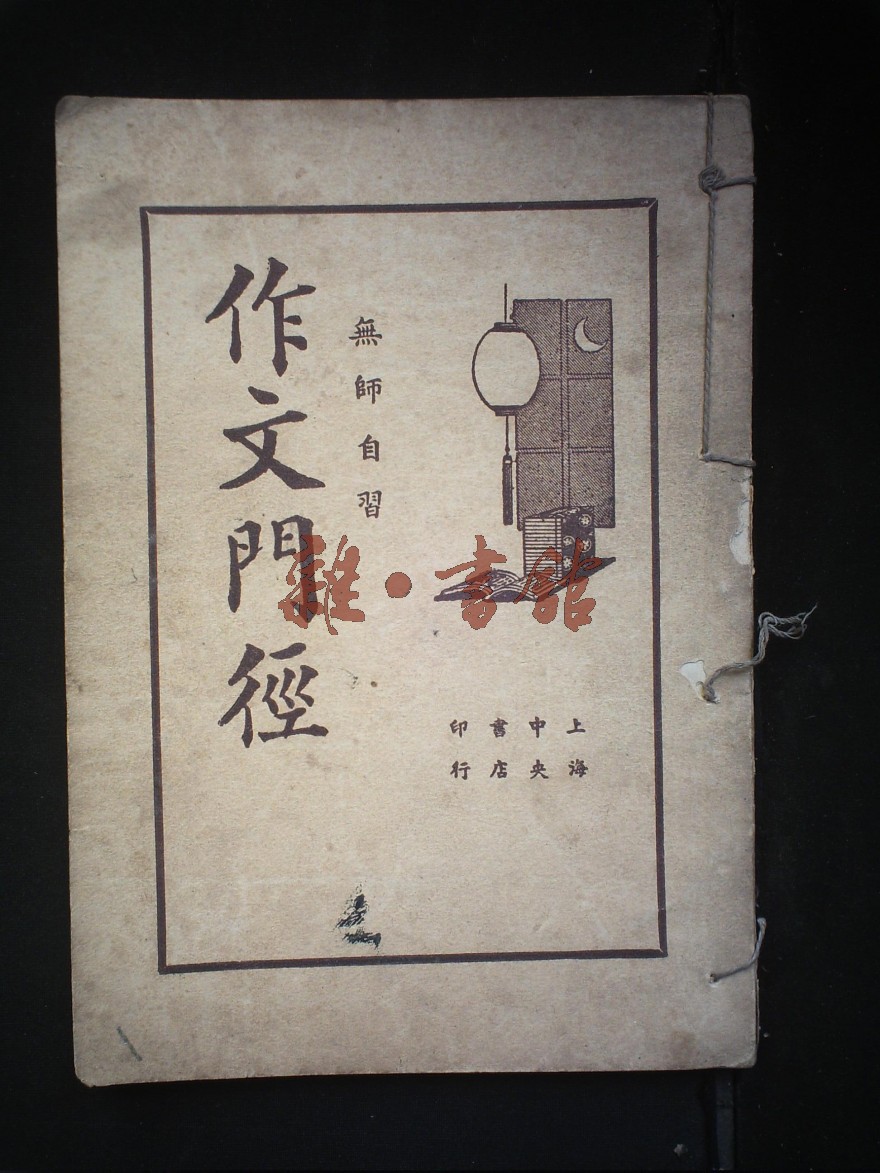 上海
中央
書店
印行
無師自習
作文門徑
雜·書館